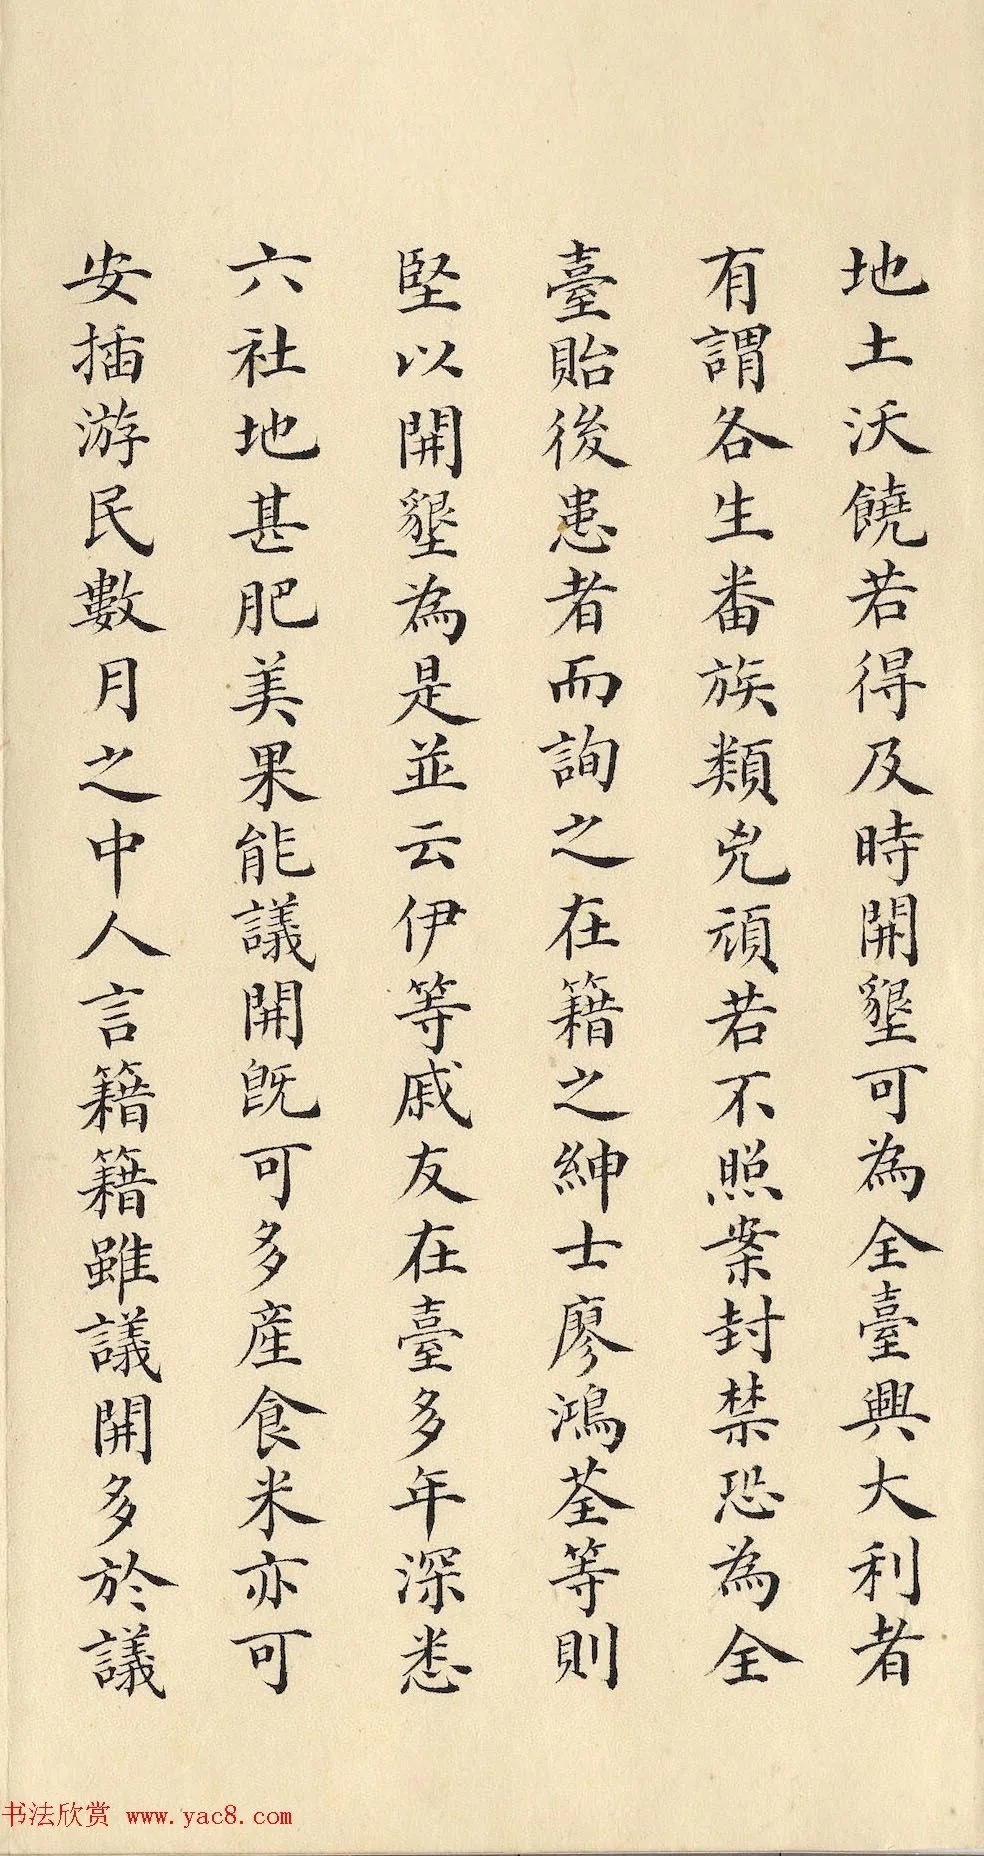 地土沃饒若得及時開墾可為全臺興大利者
有謂各生番族類兇頑若不照案封禁恐為全
臺貽後患者而詢之在籍之紳士廖鴻荃等則
堅以開墾為是並云伊等戚友在臺多年深悉
六社地甚肥美果能議開既可多產食米亦可
安插游民數月之中人言籍籍雖議開多於議
书法欣赏 www.yac8.com